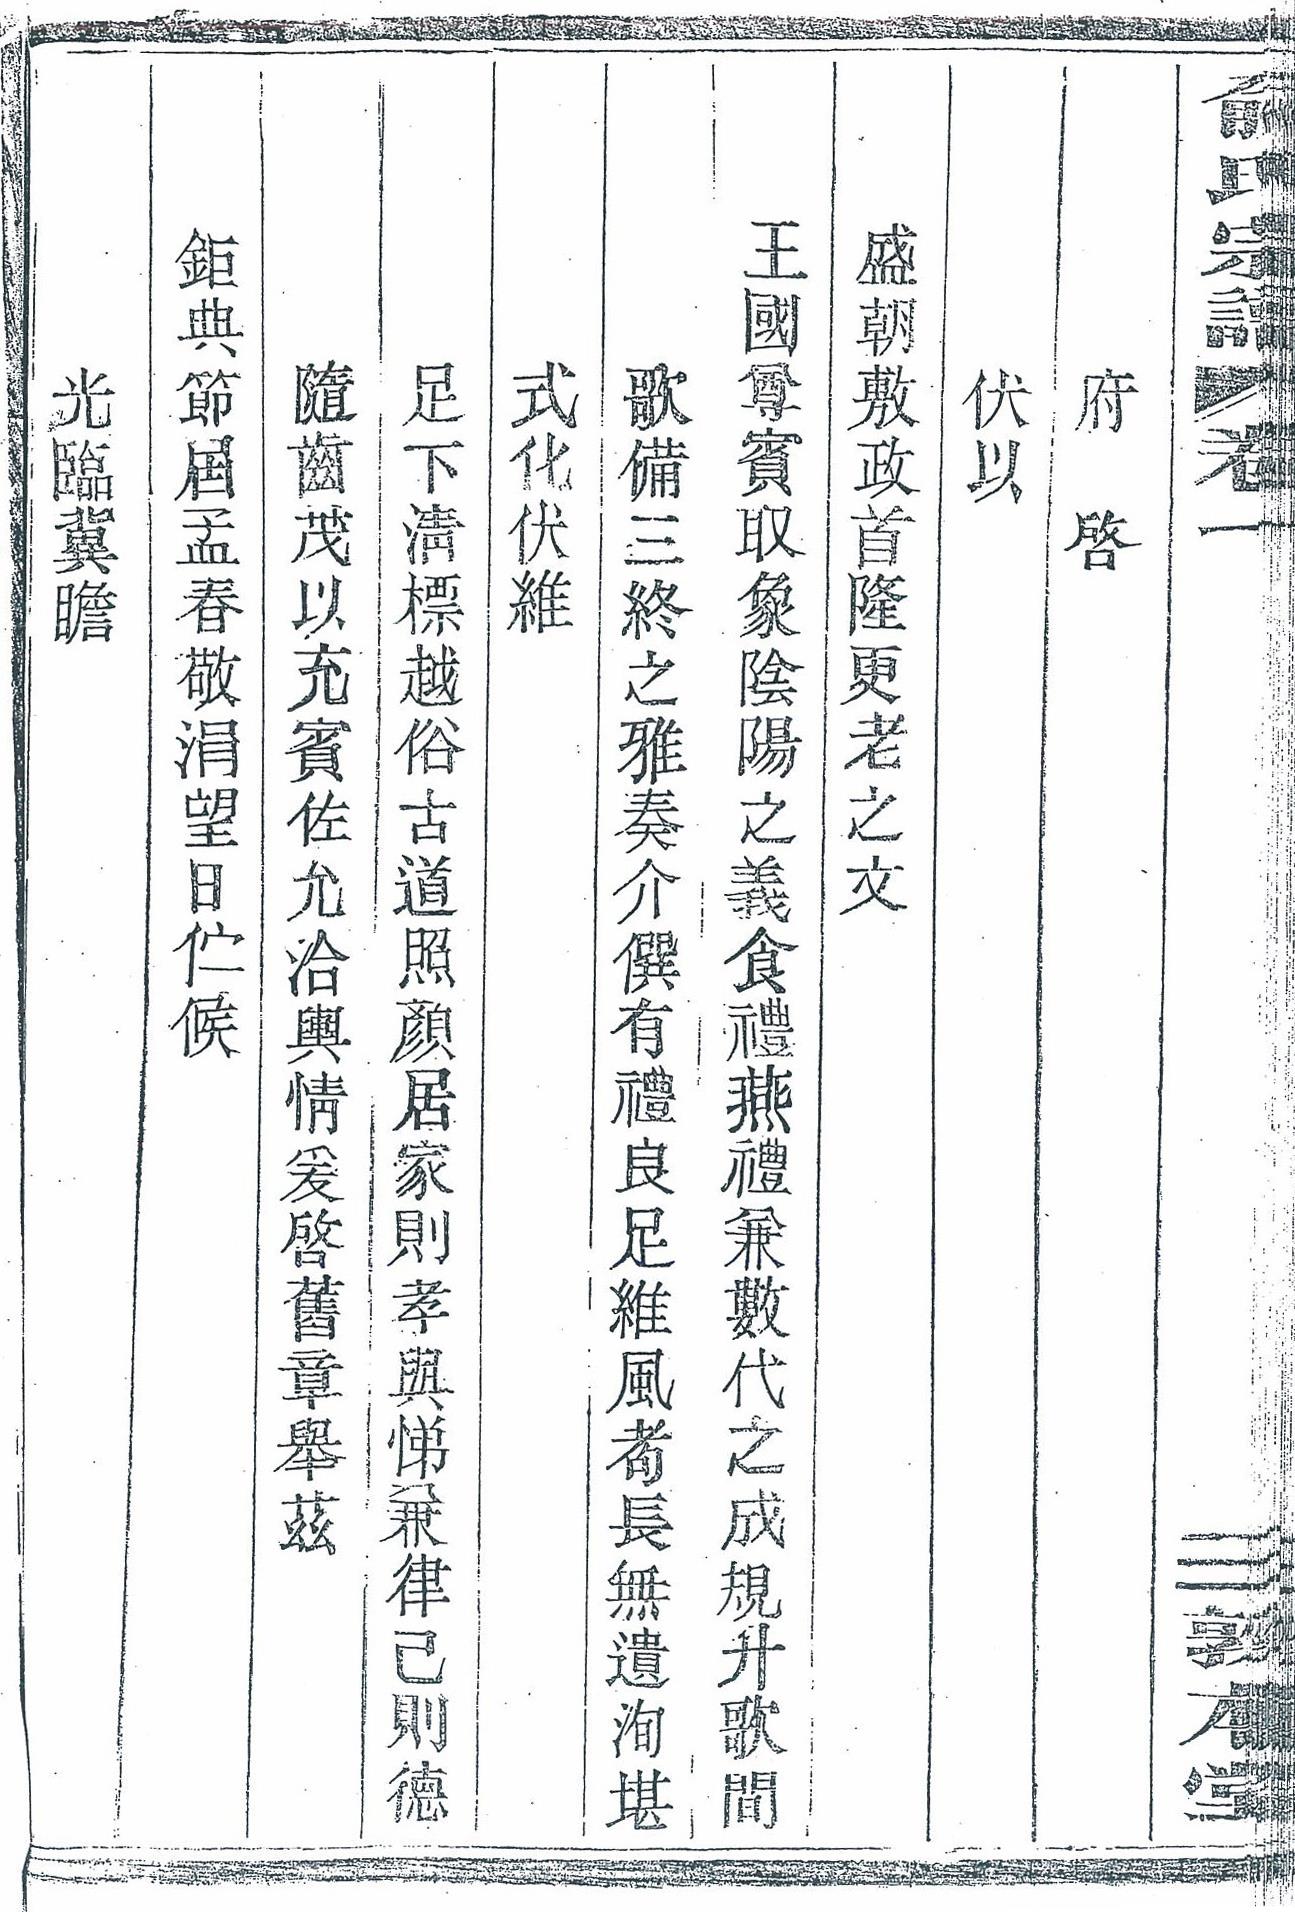 俞氏宗譜 卷一 三 敦本堂
府 啓
伏以
盛朝敷政首隆更老之文
王國尊賓取象陰陽之義食禮燕禮兼數代之成規升歌間
歌備三終之雅奏介僎有禮良足維風耇長無遺洵堪
式化伏維
足下淸標越俗古道照顏居家則孝與悌兼律己則德
隨齒茂以充賓佐允洽輿情爰啓舊章舉茲
鉅典節屆孟春敬涓望日伫候
光臨冀瞻